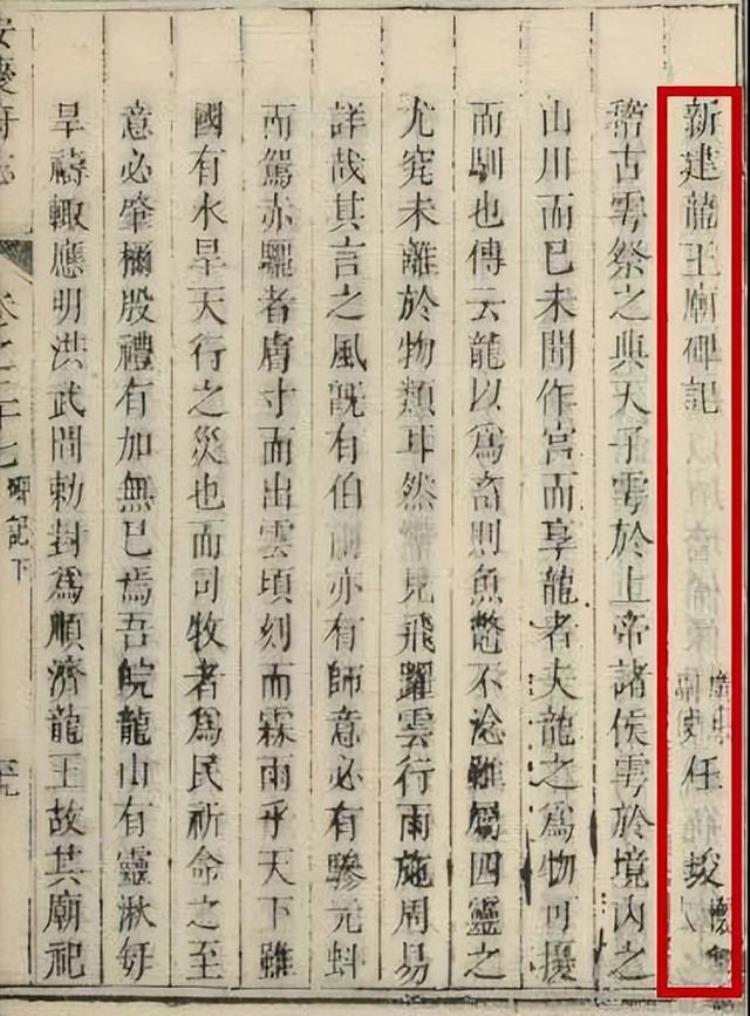 新建龍王廟碑記 史任
稽古雩祭之典天子雩於上帝諸侯雩於境內之
山川而已未聞作宮而享龍者夫龍之爲物可擾
而馴也傳云龍以爲畜則魚鱉不淰雖屬四靈之
尤究未離於物類耳然見飛躍雲行雨施周易
詳哉其言之風旣有伯雨亦有師意必有驂元蚪
而駕赤驪者膚寸而出雲頃刻而霖雨乎天下雖
國有水旱天行之災也而司牧者爲民祈命之至
意必肇稱殷禮有加無已焉吾皖龍山有靈湫每
旱禱輒應明洪武間勅封爲順濟龍王故其廟祀
安慶府志 卷之二十七 碑記下